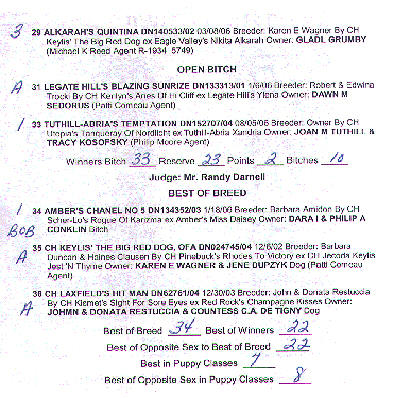 3 29 ALKARAH'S QUINTINA DN140533/02 03/08/06 Breeder: Karen E Wagner By CH
Keylis' The Big Red Dog ex Eagle Valley's Nikita Alkarah Owner: GLADL GRUMBY
(Michael K Reed Agent R-1934 5749)
OPEN BITCH
A 31 LEGATE HILL'S BLAZING SUNRIZE DN133313/01 1/6/06 Breeder: Robert & Edwina
Trocki By CH Kenlyn's Aries Of Hi Cliff ex Legate Hill's Ylena Owner: DAWN M
SEDORUS (Patti Comeau Agent)
1 33 TUTHILL-ABRIA'S TEMPTATION DN152707/04 08/05/06 Breeder: Owner By CH
Utopia's Torqueray Of Nordlicht ex Tuthill-Abria Xandria Owner: JOAN M TUTHILL &
TRACY KOSOFSKY (Philip Moore Agent)
Winners Bitch 33 Reserve 23 Points 2 Bitches 10
Judge: Mr. Randy Darnell
BEST OF BREED
1 34 AMBER'S CHANEL NO 5 DN134352/03 1/18/06 Breeder: Barbara Amidon By CH
Scher-Lo's Rogue Of Karizma ex Amber's Miss Daisey Owner: DARA I & PHILIP A
BOB CONKLIN Bitch
A 35 CH KEYLIS' THE BIG RED DOG, OFA DN024745/04 12/6/02 Breeder: Barbara
Duncan & Haines Clausen By CH Pinebuck's Rhodes To Victory ex CH Jecoda Keylis
Jest 'N Thyme Owner: KAREN E WAGNER & JENE DUPZYK Dog (Patti Comeau
Agent)
A 36 CH LAXFIELD'S HIT MAN DN62761/04 12/30/03 Breeder: John & Donata Restuccia
By CH Klemet's Sight For Sore Eyes ex Red Rock's Champagne Kisses Owner:
JOHMN & DONATA RESTUCCIA & COUNTESS C.A. DE TIGNY Dog
Best of Breed 34 Best of Winners 22
Best of Opposite Sex to Best of Breed 22
Best in Puppy Classes 7
Best of Opposite Sex in Puppy Classes 8